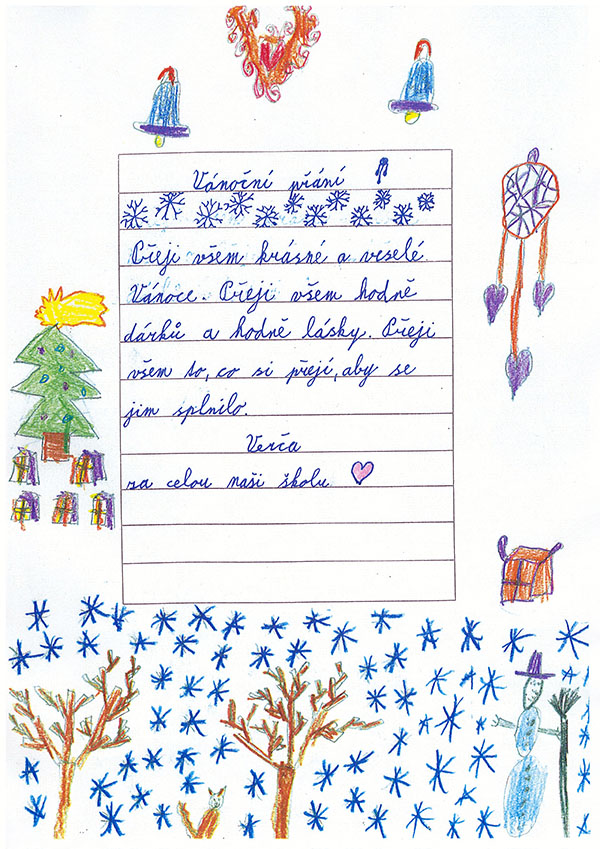 Vánoční přání !
Přeji všem krásné a veselé
Vánoce. Přeji všem hodně
dárků a hodně lásky. Přeji
všem to, co si přejí, aby se
jim splnilo.
Verča
za celou naši školu